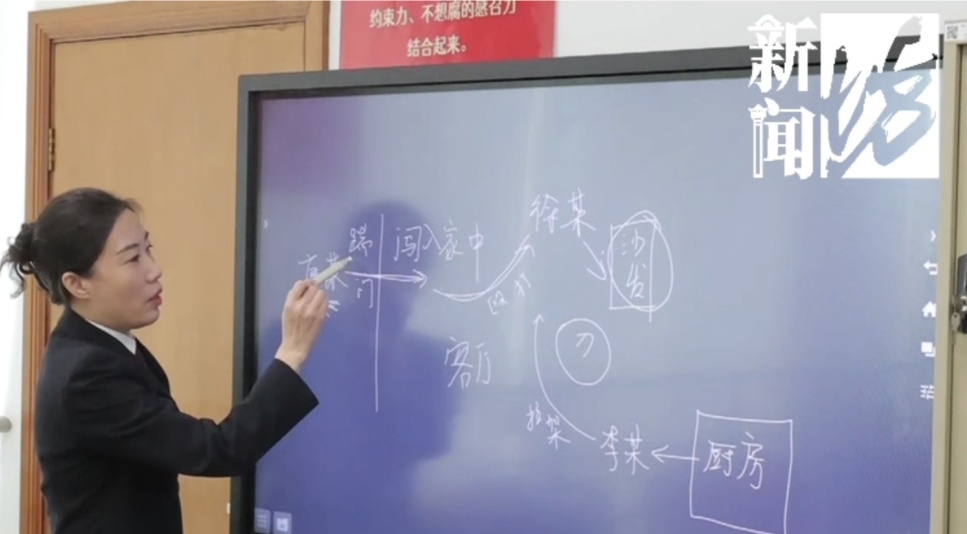 约束力、不想腐的感召力
结合起来。
新闻
徐某
踹门
闯入家中
沙发
客厅
刀
李某
厨房